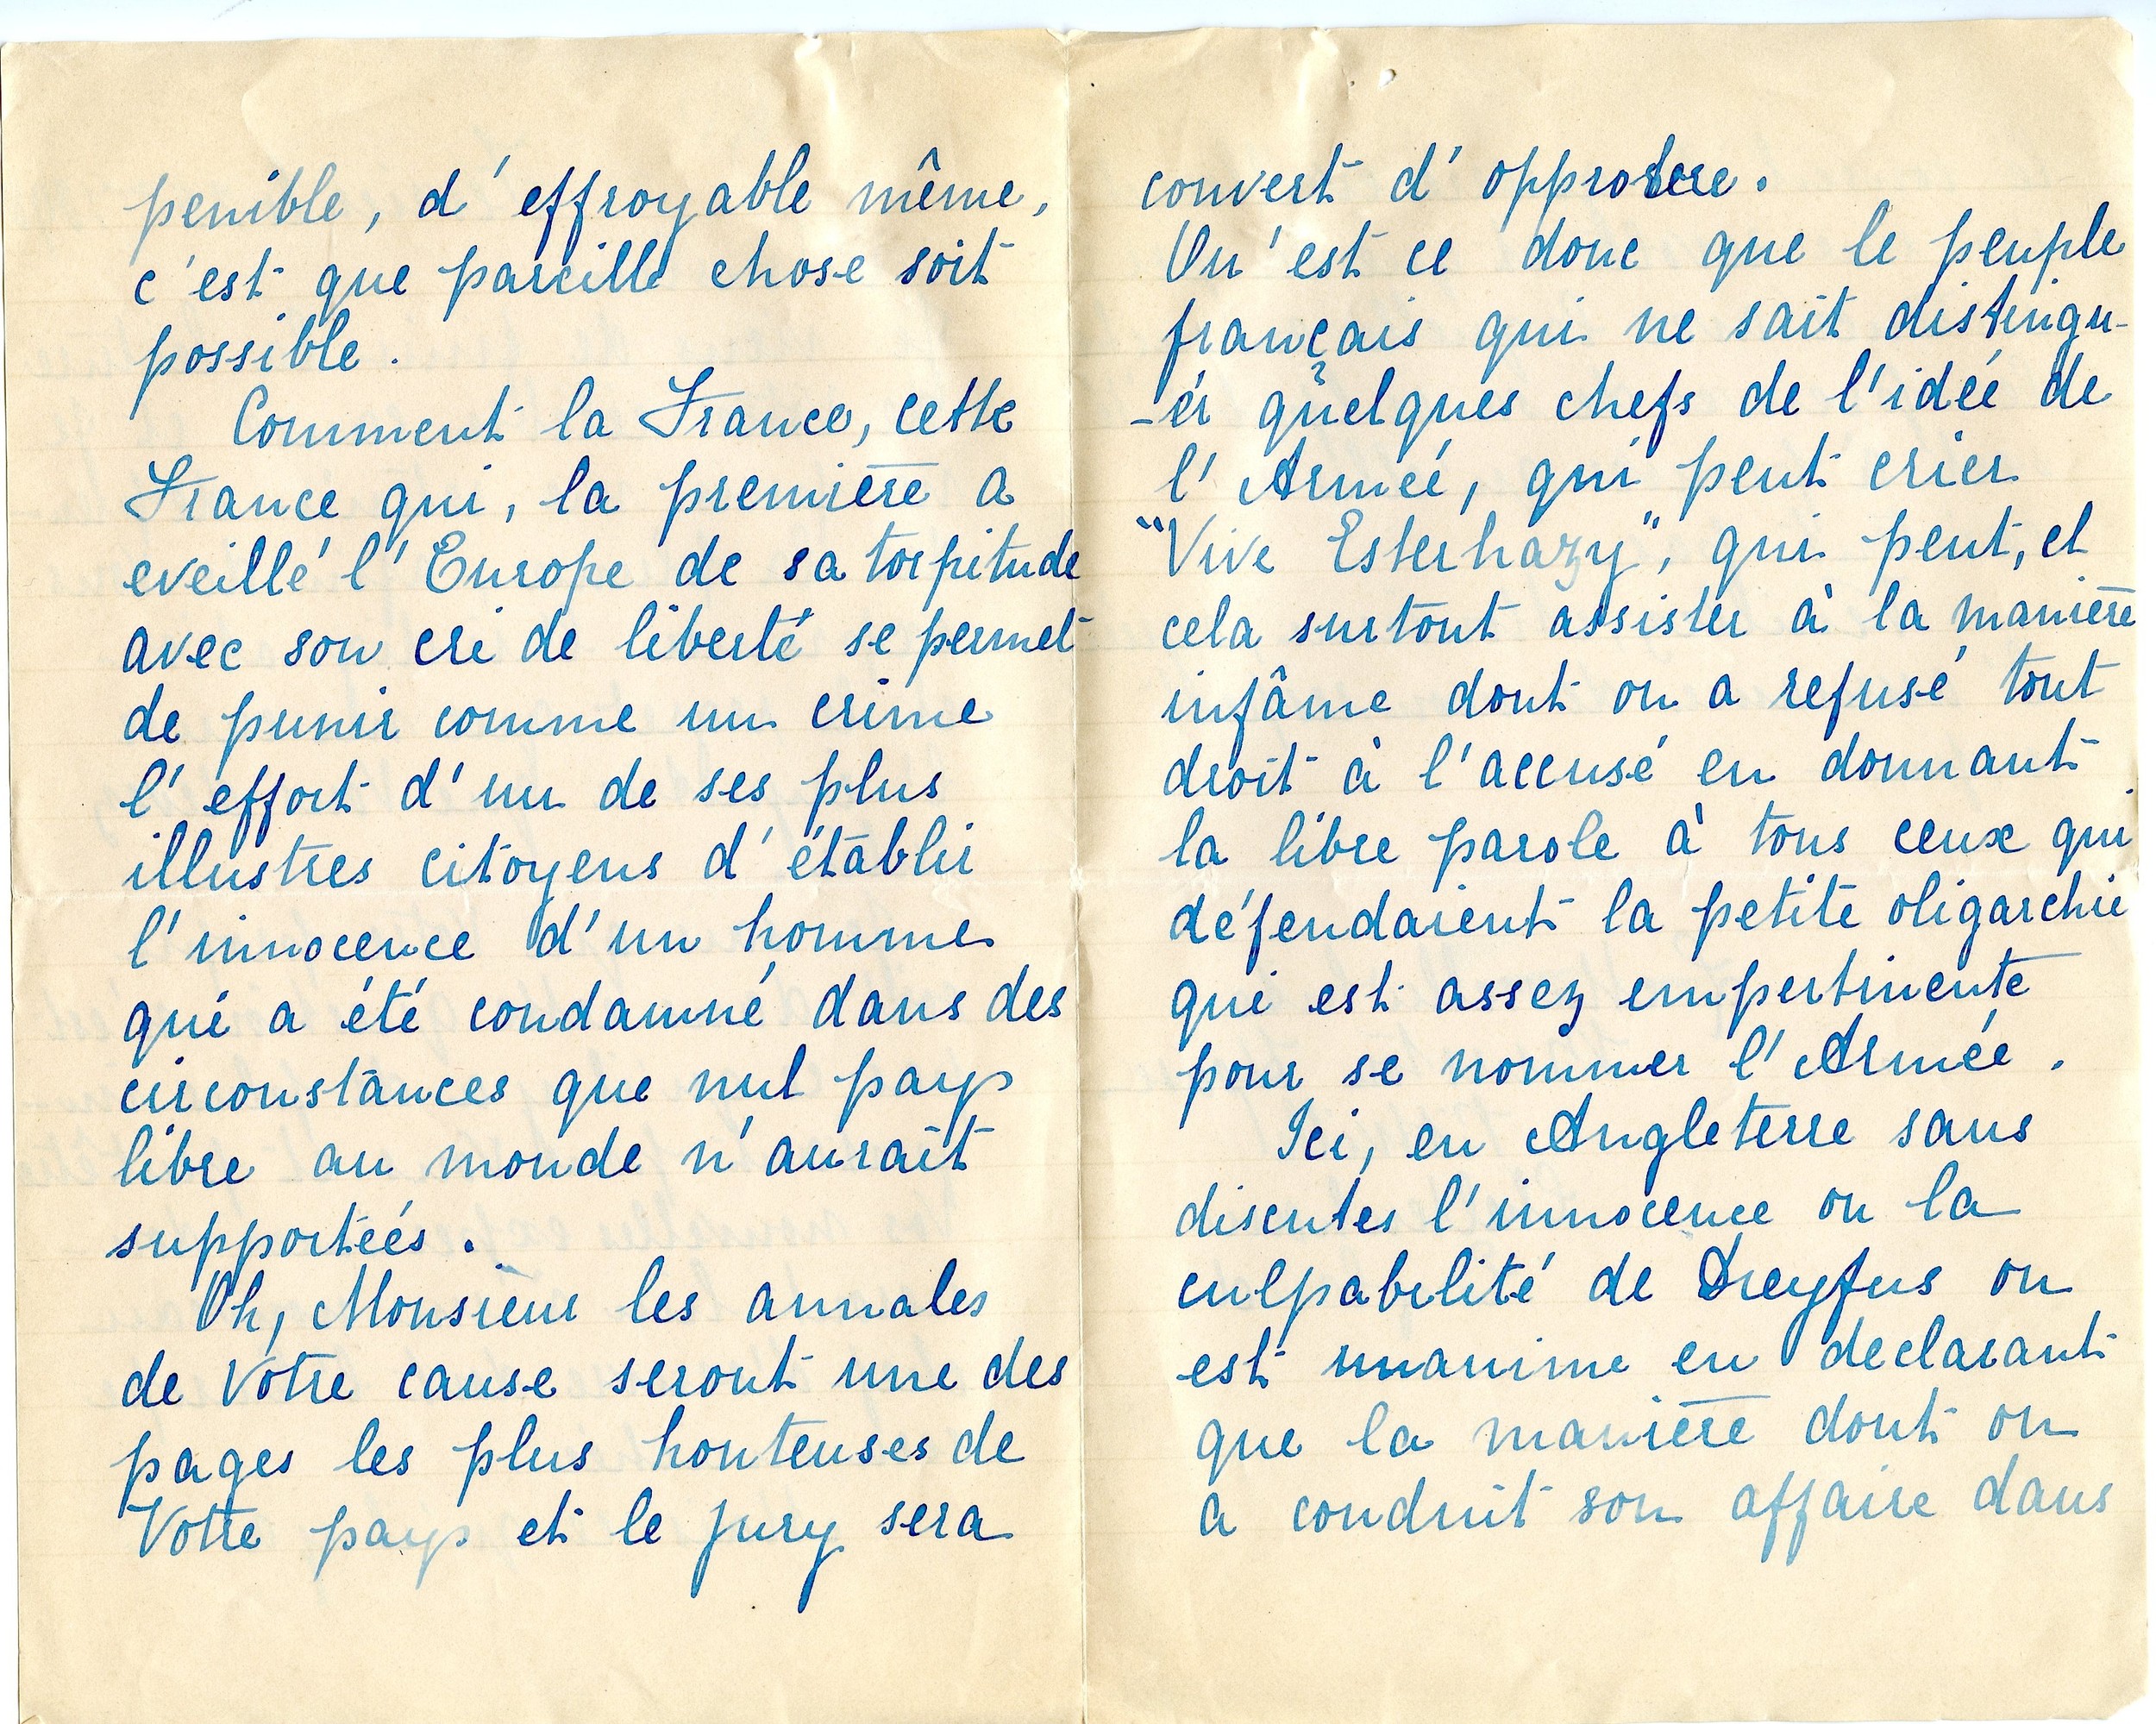 penible, d'effroyable même,
c'est que pareille chose soit
possible.
Comment la France, cette
France qui, la première a
eveillé l'Europe de sa torpitude
avec son cri de liberté se permet
de punir comme un crime
l'effort d'un de ses plus
illustres citoyens d'établir
l'innocence d'un homme
qui a été condamné dans des
circonstances que nul pays
libre au monde n'aurait
supportées.
Oh, Monsieur les annales
de Votre cause seront une des
pages les plus honteuses de
Votre pays et le jury sera
couvert d'opprobre.
Qu'est ce donc que le peuple
français qui ne sait distingu-
-er quelques chefs de l'idée de
l'Armée, qui peut crier
"Vive Esterhazy", qui peut, et
cela surtout assister à la manière
infâme dont on a refusé tout
droit à l'accusé en donnant
la libre parole à tous ceux qui
défendaient la petite oligarchie
qui est assez empertinente
pour se nommer l'Armée.
Ici, en Angleterre sans
discuter l'innocence ou la
culpabilité de Dreyfus on
est unanime en declarant
que la manière dont on
a conduit son affaire dans